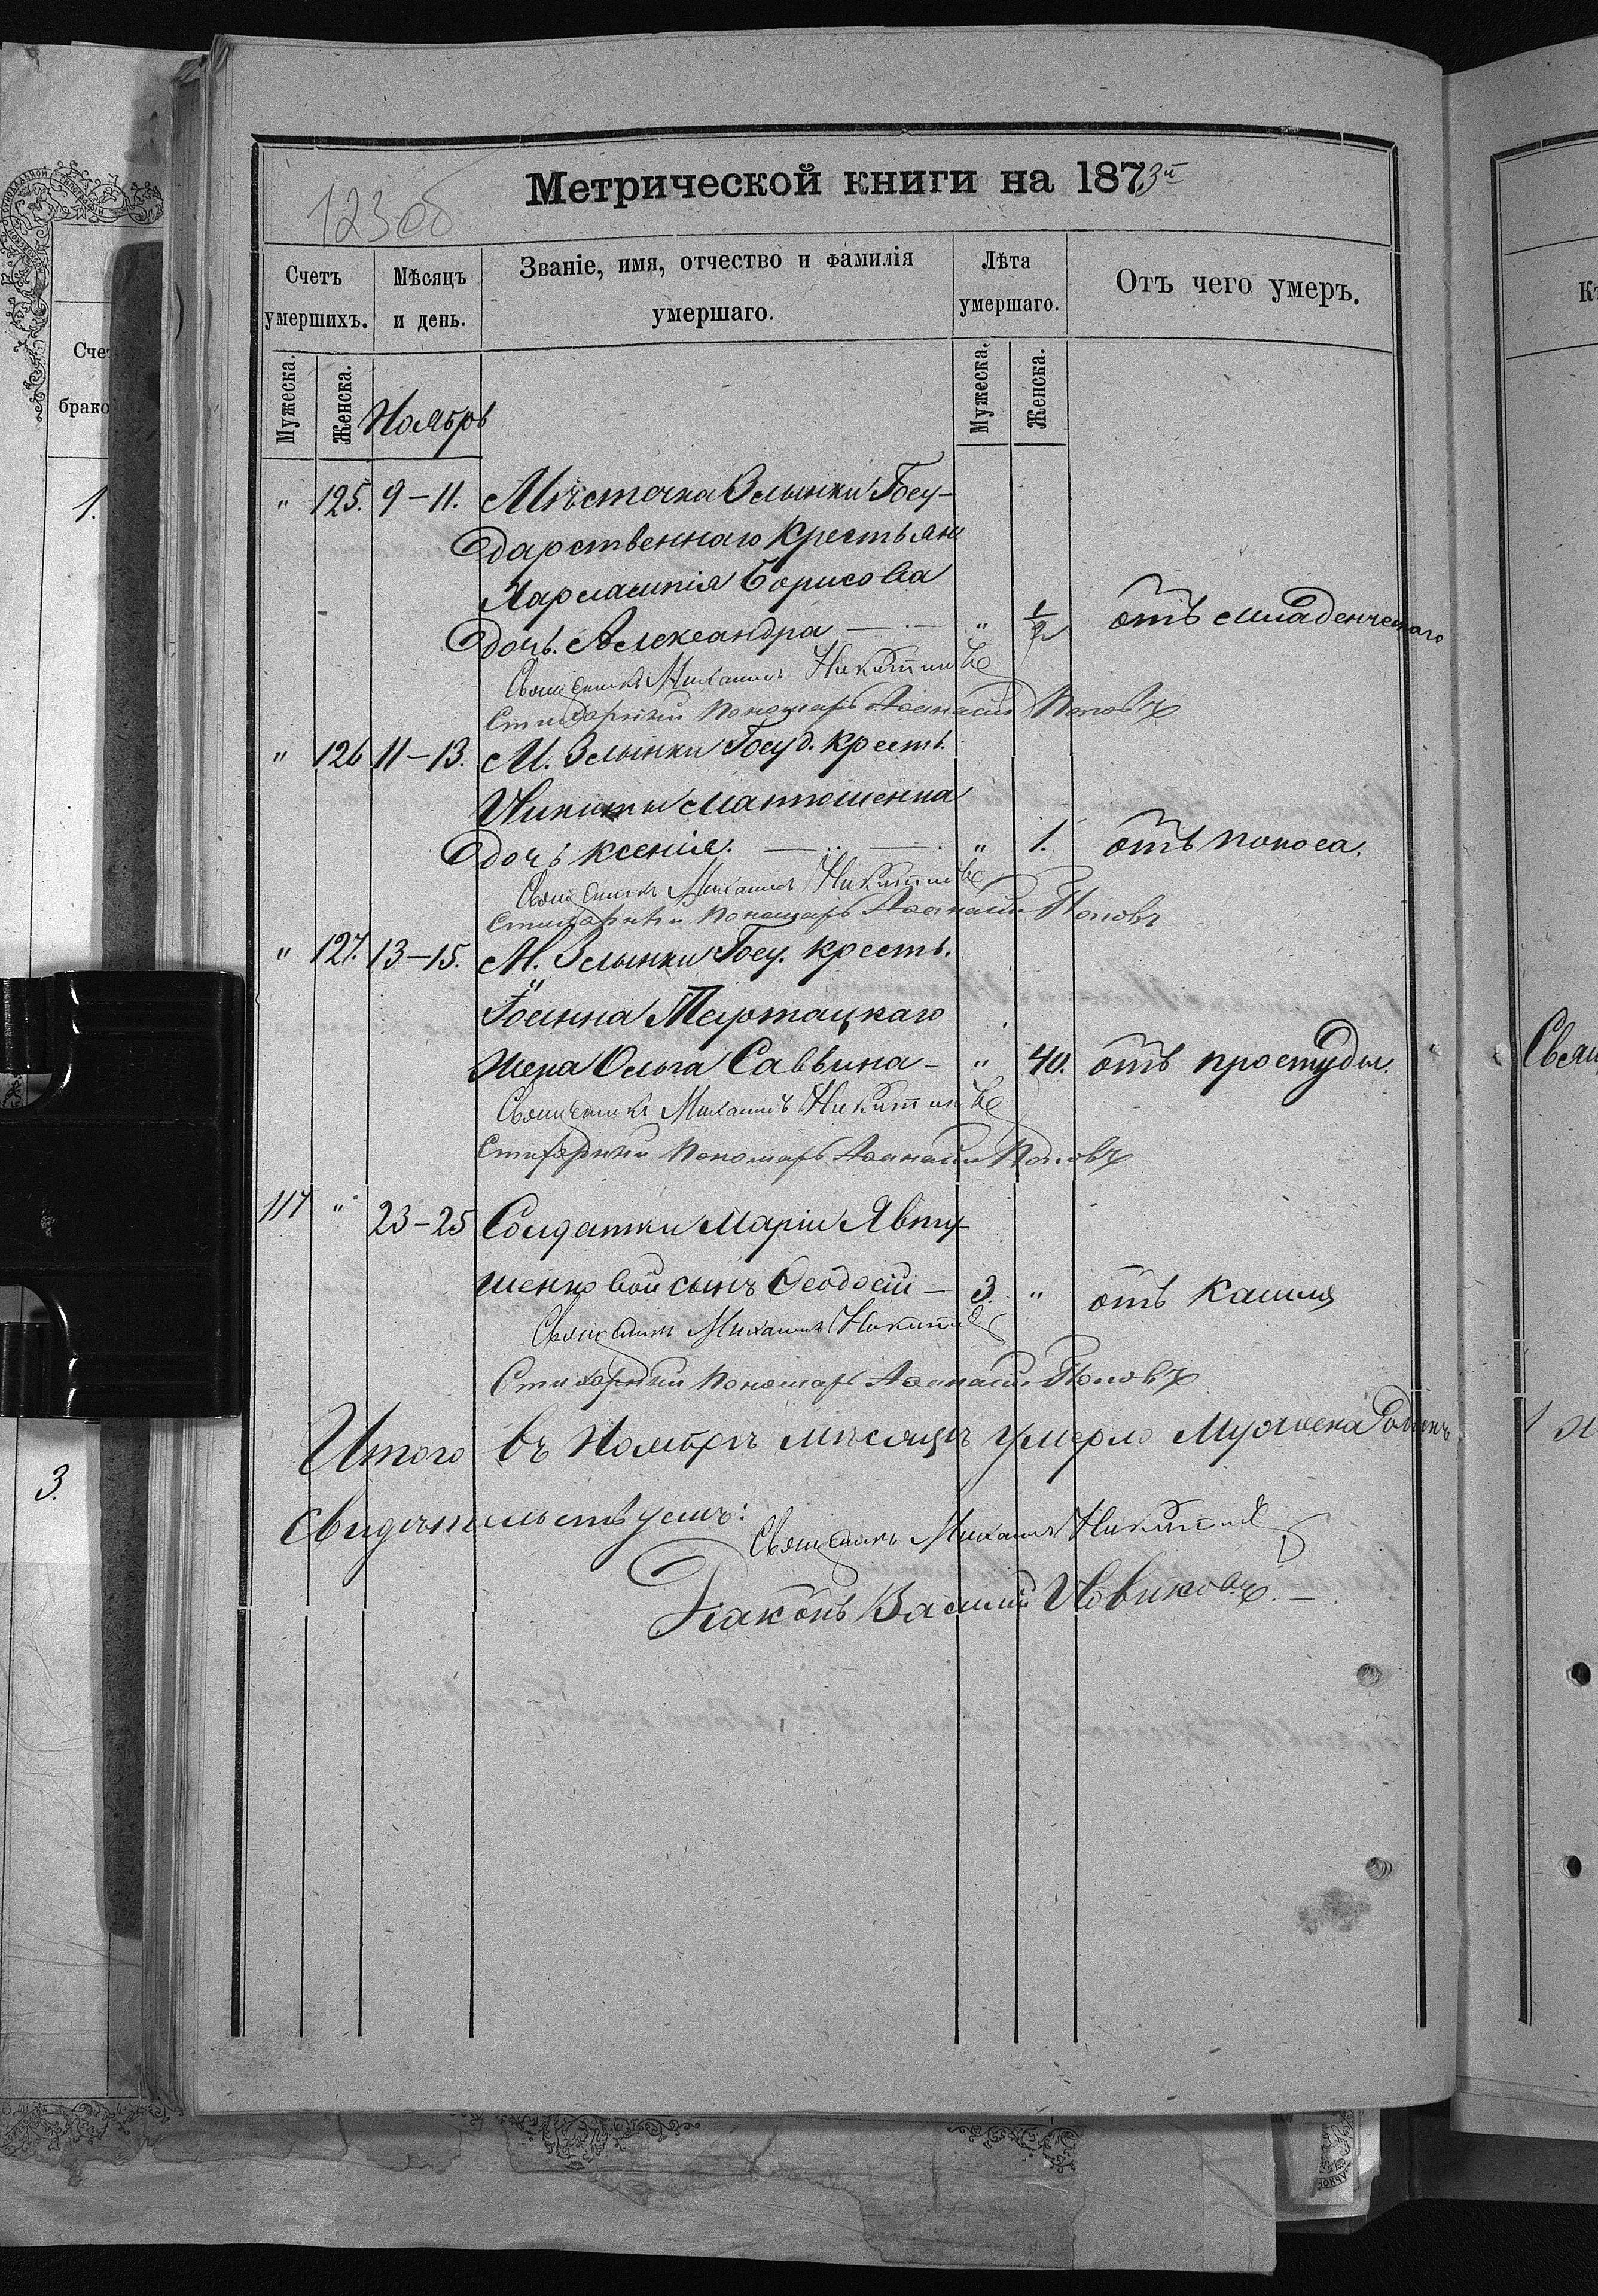 123 об
Метрической книги на 1873й
Счетъ умершихъ.
Мѣсяцъ и день.
Званіе, имя, отчество и фамилія умершаго.
Лѣта умершаго.
Отъ чего умеръ.
Мужеска.
Женска.
Мужеска.
Женска.
Ноябрь
" 125. 9-11. Мѣстечка Злынки Госу-
дарственнаго крестьяни
Харлампія Борисова
дочь Александра " 1/2 отъ младенческаго
Священникъ Михаилъ Никитинъ
Стихарный Пономарь Аѳанасій Поповъ
" 126 11-13. М. Злынки Госуд. крест.
Никиты Матюшенка
дочь Ксенія. " 1. отъ поноса.
Священникъ Михаилъ Никитинъ
Стихарный Пономарь Аѳанасій Поповъ
" 127. 13-15. М. Злынки Госу. крест.
Іоанна
жена Ольга Саввина - " 40. отъ простуды.
Священникъ Михаилъ Никитинъ
Стихарный Пономарь Аѳанасій Поповъ
117 " 23-25 Солдатки Маріи Явту-
шенковой сынъ Ѳеодосій - 3. " отъ кашля
Священникъ Михаилъ Никитинъ
Стихарный Пономарь Аѳанасій Поповъ
Итого въ Ноябрѣ мѣсяцѣ умерло Мужеска
свидѣтельствуемъ:
Священникъ Михаилъ Никитинъ
Діаконъ Василій Новиковъ.
Сче
брако
1.
3.
Свящ